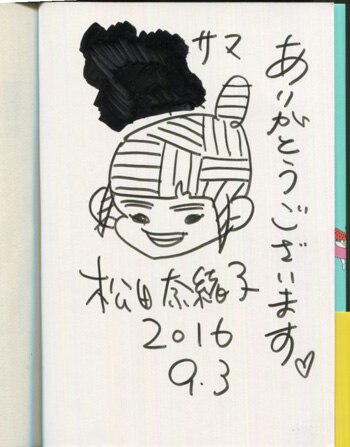 サマ
ありがとうございます♡
松田奈緒子
2016
9.3